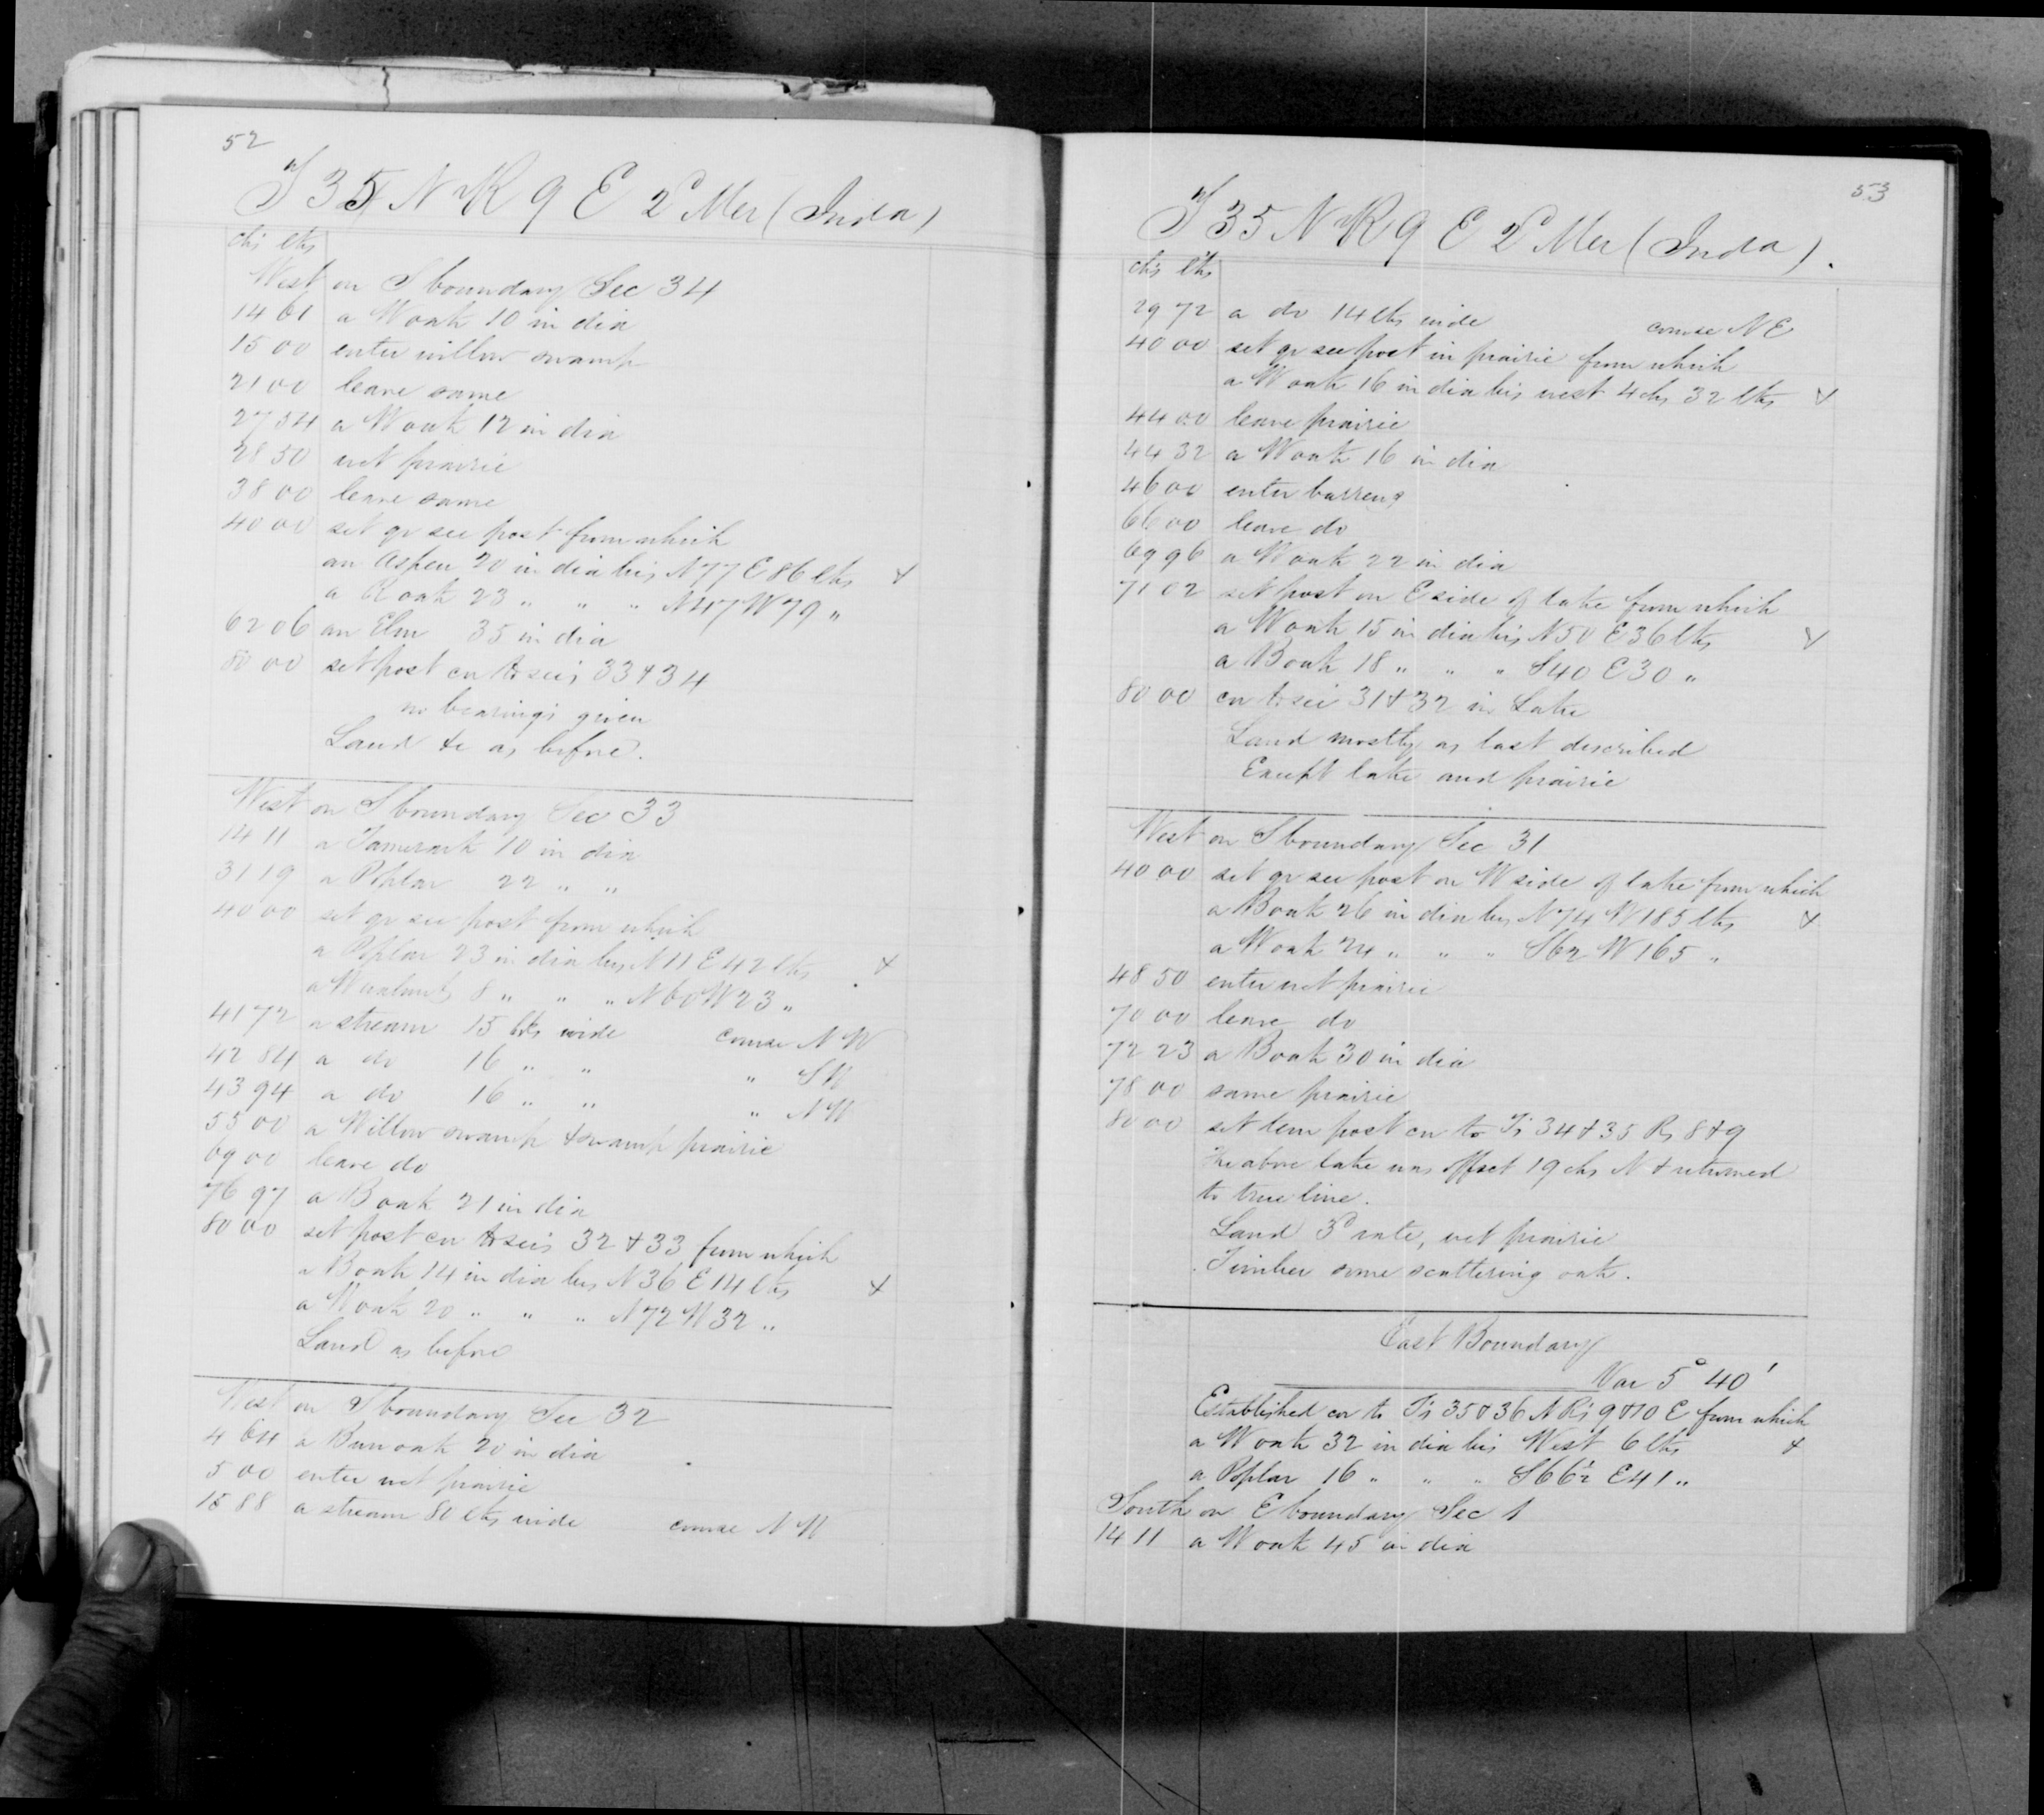 52
T 35 N R 9 E 2d Mer (Inda)
chs lks
West on S boundary Sec 34
14 61 a W oak 10 in dia
15 00 enter willow swamp
21 00 leave same
27 54 a W oak 12 in dia
28 50 wet prairie
38 00 leave same
40 00 set qr sec post from which
an Aspen 20 in dia brs N 77 E 86 lks +
a R oak 23 " " " N 47 W 79 "
62 06 an Elm 35 in dia
80 00 set post cor to secs 33 & 34
no bearings given
Land &c as before.
West on S boundary Sec 33
14 11 a Tamerack 10 in dia
31 19 a Poplar 22 " "
40 00 set qr sec post from which
a Poplar 23 in dia brs N 11 E 42 lks +
a W walnut 8 " " " N 60 W 23 "
41 72 a stream 15 lks wide course N W
42 84 a do 16 " " " S W
43 94 a do 16 " " " N W
55 00 a Willow swamp & swamp prairie
69 00 leave do
76 97 a B oak 21 in dia
80 00 set post cor to secs 32 & 33 from which
a B oak 14 in dia brs N 36 E 14 lks +
a W oak 20 " " " N 72 W 32 "
Land as before
West on S boundary Sec 32
4 64 a Burr oak 20 in dia
5 00 enter wet prairie
15 88 a stream 80 lks wide course N W
53
T 35 N R 9 E 2d Mer (Inda).
chs lks
29 72 a do 14 lks wide course N E
40 00 set qr sec post in prairie from which
a W oak 16 in dia brs west 4 chs 32 lks +
44 00 leave prairie
44 32 a W oak 16 in dia
46 00 enter barrens
66 00 leave do
69 96 a W oak 22 in dia
71 02 set post on E side of lake from which
a W oak 15 in dia brs N 50 E 36 lks +
a B oak 18 " " " S 40 E 30 "
80 00 cor to sec 31 & 32 in Lake
Land mostly as last described
Except lake and prairie
West on S boundary Sec 31
40 00 set qr sec post on W side of lake from which
a B oak 26 in dia brs N 74 W 185 lks +
a W oak 24 " " " S 62 W 165 "
48 50 enter wet prairie
70 00 leave do
72 23 a B oak 30 in dia
78 00 same prairie
80 00 set tem post cor to Ts 34 & 35 Rs 8 & 9
The above lake was offset 19 chs N & returned
to true line.
Land 3d rate, wet prairie
Timber some scattering oak.
East Boundary
Var 5° 40'
Established cor to Ts 35 & 36 N Rs 9 & 10 E from which
a W oak 32 in dia brs West 6 lks +
a Poplar 16 " " " S 66½ E 41 "
South on E boundary Sec 1
14 11 a W oak 45 in dia